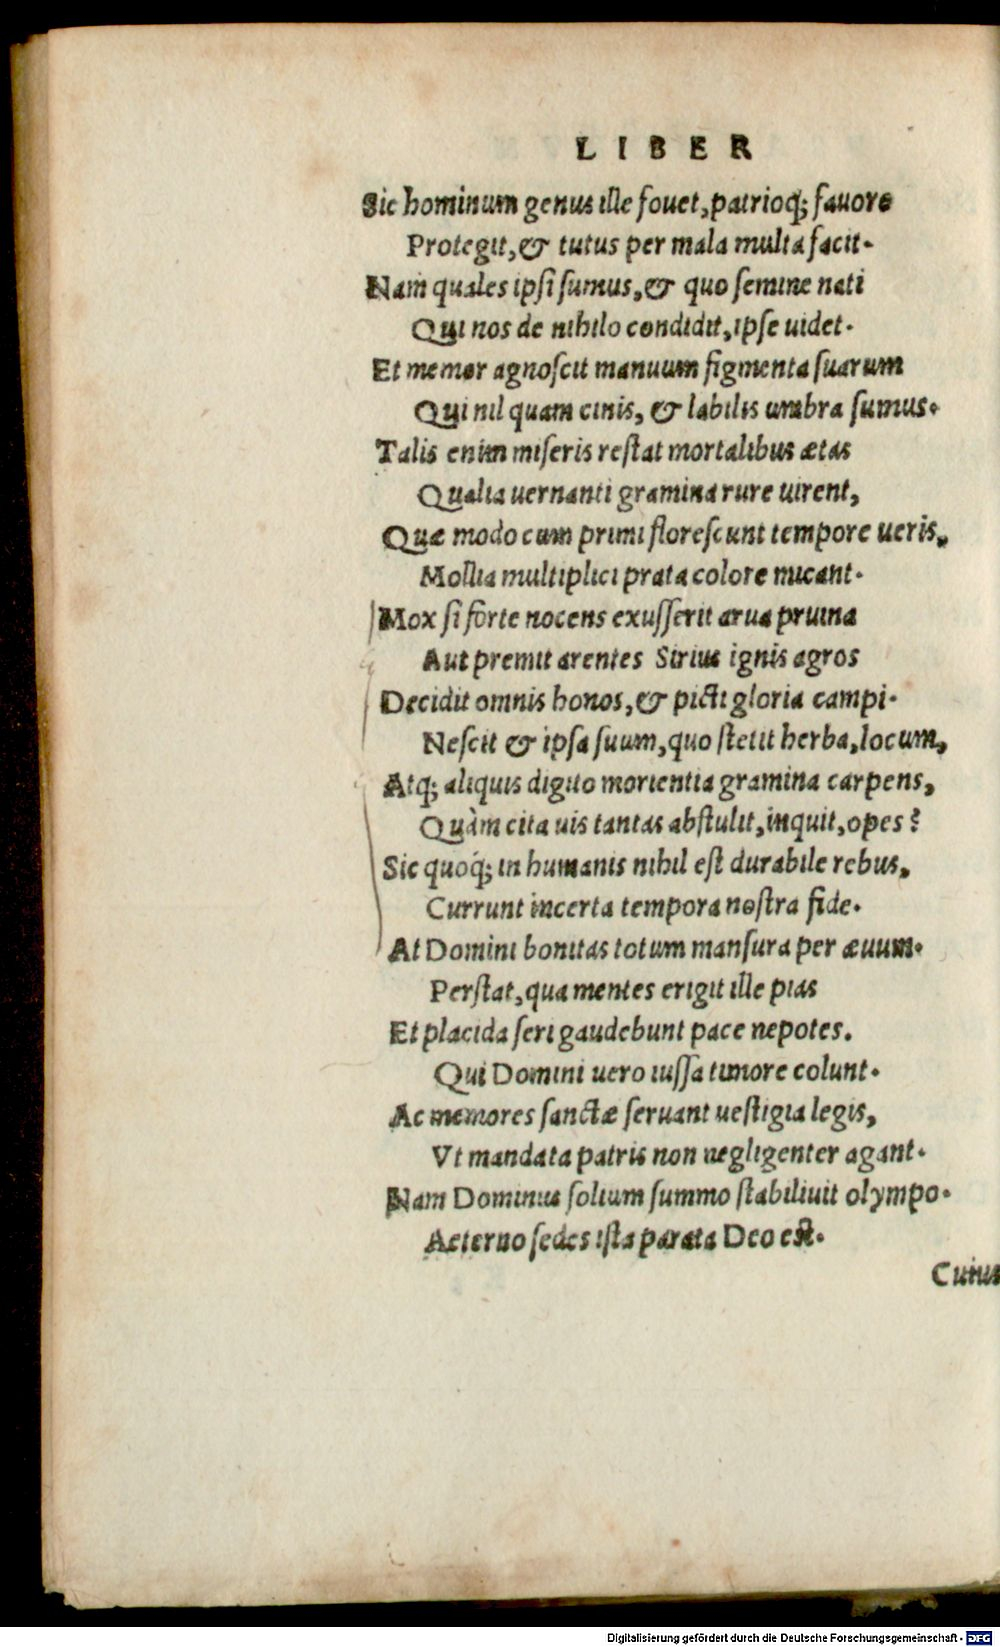 LIBER
Sic hominum genus ille fouet, patrioq́; fauore
Protegit, & tutus per mala multa facit.
Nam quales ipsi sumus, & quo semine nati
Qui nos de nihilo condidit, ipse uidet.
Et memor agnoscit manuum figmenta suarum
Qui nil quam cinis, & labilis umbra sumus.
Talis enim miseris restat mortalibus ætas
Qualia uernanti gramina rure uirent,
Quæ modo cum primi florescunt tempore ueris,
Mollia multiplici prata colore micant.
Mox si forte nocens exusserit arua pruina
Aut premit arentes Sirius ignis agros
Decidit omnis honos, & picti gloria campi.
Nescit & ipsa suum, quo stetit herba, locum,
Atq; aliquis digito morientia gramina carpens,
Quàm cita uis tantas abstulit, inquit, opes?
Sic quoq́; in humanis nihil est durabile rebus,
Currunt incerta tempora nostra fide.
At Domini bonitas totum mansura per æuum.
Perstat, qua mentes erigit ille pias
Et placida seri gaudebunt pace nepotes.
Qui Domini uero iussa timore colunt.
Ac memores sanctæ seruant uestigia legis,
Vt mandata patris non negligenter agant.
Nam Dominus solium summo stabiliuit olympo.
Aeterno sedes ista parata Deo est.
Cuius
Digitalisierung gefördert durch die Deutsche Forschungsgemeinschaft - DFG